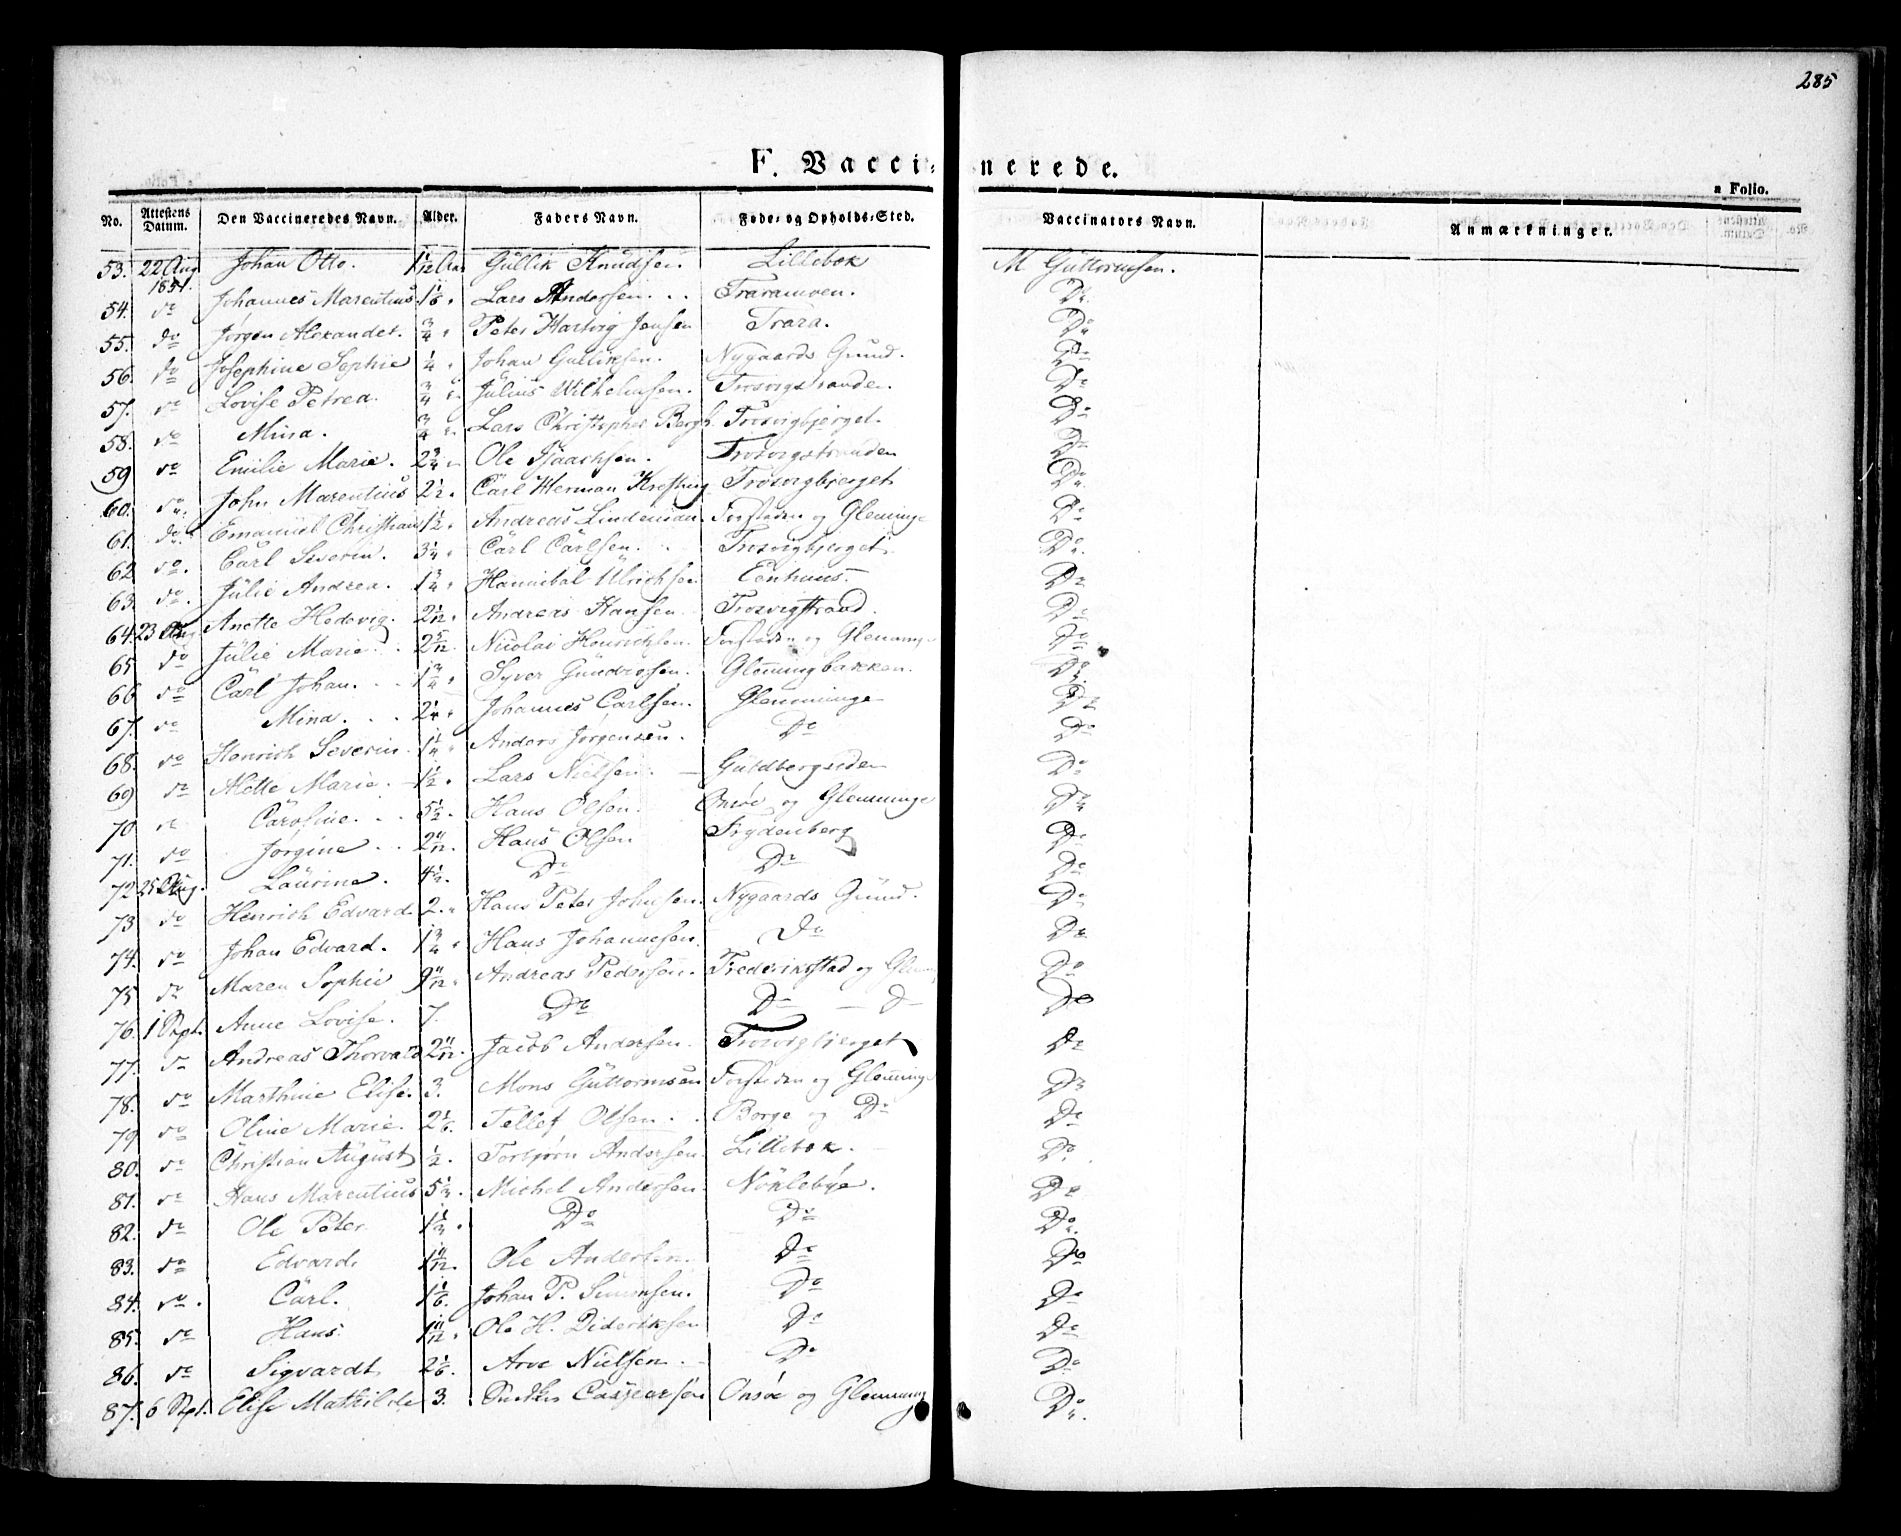 285
F. Vaccinerede.
a Folio.
No. Attestens Datum. Den Vaccineredes Navn. Alder. Faders Navn. Føde- og Opholds-Sted. Vaccinators Navn. Anmærkninger.
53. 22 Aug 1851. Johan Otto. 1 1/12 Aar Gullik Knudsen. Lillebek M Guttormsen.
54. do Johannes Marentius 1 1/6 " Lars Andersen. Traramoen. Do
55. do Jørgen Alexander. 3/4 " Peter Hartvig Jensen Trara. Do
56. do Josephine Sophie 1/4 " Johan Gulliksen. Nygaards Grund. Do
57. do Lovise Petrea. 3/4 " Julius Wilhelmsen. Trosvigstranden. Do
58. do Mina. 3/4 " Lars Christopher Bergh. Trosvigbjerget. Do
59 do Emilie Marie. 2 3/4 " Ole Isaachsen. Trosvigstranden Do
60. do John Marentius 2 1/2 " Carl Herman Trosvigbjerget Do
61. do Emanuel Christian 1 1/2 " Andreas Lindeman. Forstaden og Glemminge Do
62 do. Carl Severin. 3 1/4 " Carl Carlsen. Trosvigbjerget. Do
63. do. Julie Andrea. 1 3/4 " Hannibal Ulrichsen Eenhuus. Do
64. 23 Aug Anette Hedevig. 2 1/12 " Andreas Hansen. Trosvigstrand. Do
65 do Julie Marie. 2 5/12 " Nicolai Henrichsen Forstaden og Glemminge Do
66 do Carl Johan. 1 3/4 " Syver Gundersen. Glemmingbakken. Do
67. do Mina. 2 1/4 " Johannes Carlsen. Glemminge Do
68. do Henrich Severin. 1 1/4 " Anders Jørgensen. Do Do
69 do Mette Marie. 1 1/2 " Lars Nielsen. Guldbergsiden Do
70 do Caroline. 5 1/2 " Hans Olsen. Onsøe og Glemminge Do
71. do Jørgine. 2 11/12. Hans Olsen Frydenberg Do
72 25 Aug. Laurine. 4 1/2. Do Do Do
73 do Henrich Edvard 2. " Hans Peter Johnsen. Nygaards Grund. Do
74. do Johan Edvard. 1 3/4 " Hans Johannesen. Do Do
75 do Maren Sophie 9 11/12 " Andreas Pedersen. Frederikstad og Glem Do
76. 1 Sept. Anne Lovise. 7. Do Do — D Do
77. do Andreas Thorvald 2 11/12. Jacob Andersen. Trosvigbjerget Do
78. do Marthine Elise. 3. Mons Guttormsen Forstaden og Glemminge Do
79 do Oline Marie. 2 1/6. Tellef Olsen. Borge og Do Do
80. do Christian August 1/2. Torbjørn Andersen. Lillebek. Do
81. do Hans Marentius 5 1/2. Michel Andersen. Nøklebye. Do
82. do Ole Peter 1 1/2. Do Do Do
83. do Edvard. 1 11/12. Ole Andersen. Do Do
84. do. Carl. 1 1/6. Johan P. Simensen. Do Do
85. do Hans. 1 11/12 " Ole H. Dideriksen Do Do
86. do Sigvardt 2 1/6. Arve Nielsen. Do Do
87. 6 Sept. Elise Mathilde 3. Caspersen Onsøe og Glemming Do